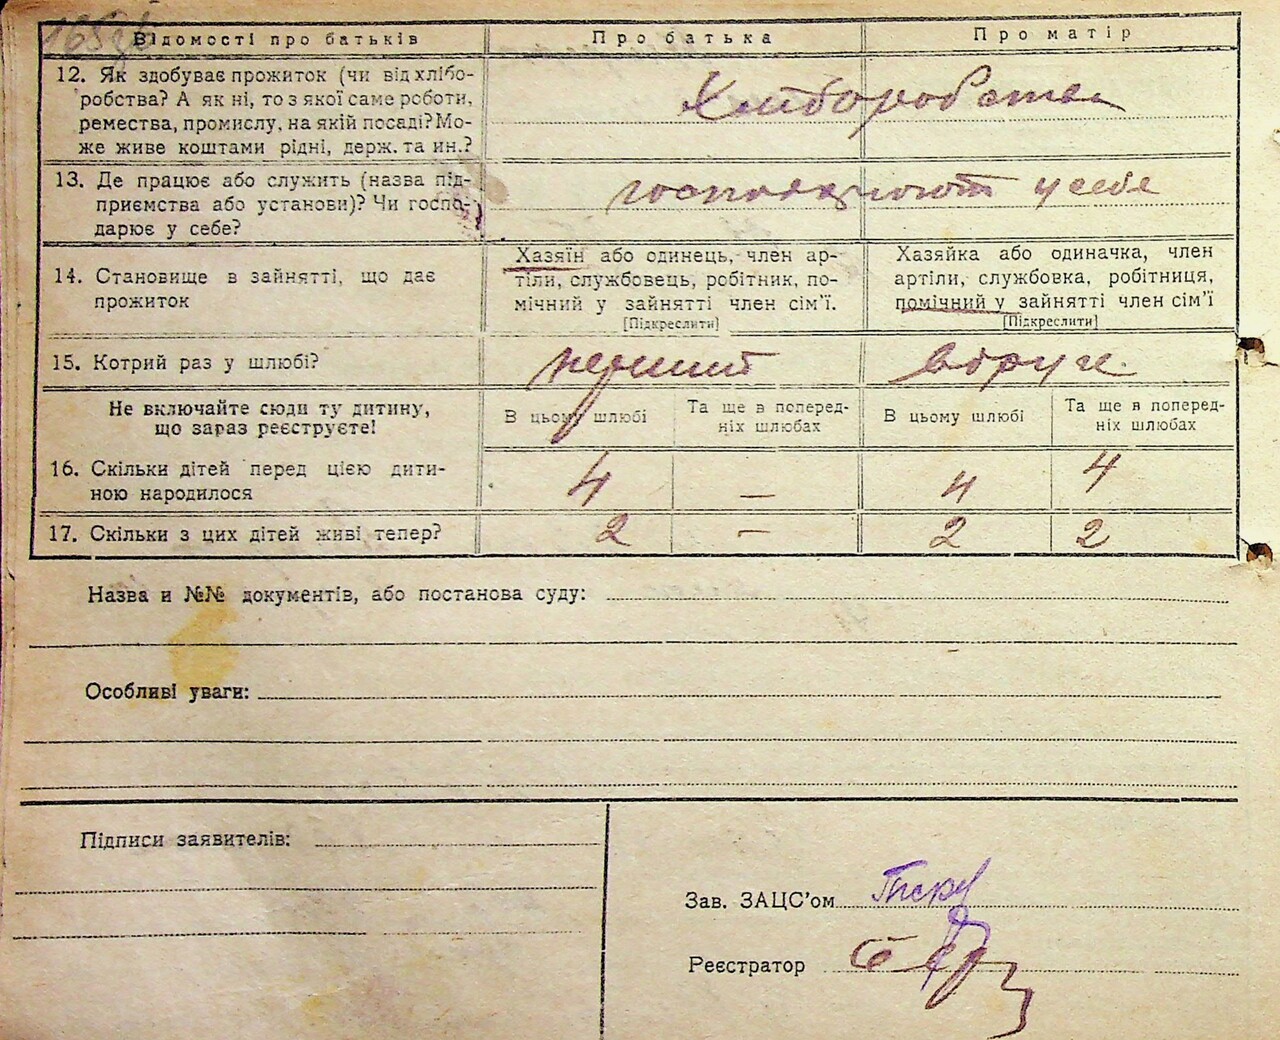 Відомості про батьків
Про батька
Про матір
12. Як здобуває прожиток (чи від хлібо-
робства? А як ні, то з якої саме роботи,
ремества, промислу, на якій посаді? Мо-
же живе коштами рідні, держ. та ин.?
Хліборобства
13. Де працює або служить (назва під-
приємства або установи)? Чи госпо-
дарює у себе?
господарюют у себе
14. Становище в зайнятті, що дає
прожиток
Хазяїн або одинець, член ар-
тіли, службовець, робітник, по-
мічний у зайнятті член сім'ї.
[Підкреслити]
Хазяйка або одиначка, член
артіли, службовка, робітниця,
помічний у зайнятті член сім'ї
[Підкреслити]
15. Котрий раз у шлюбі?
перший
вдруге.
Не включайте сюди ту дитину,
що зараз реєструєте!
В цьому шлюбі
Та ще в поперед-
ніх шлюбах
В цьому шлюбі
Та ще в поперед-
ніх шлюбах
16. Скільки дітей перед цією дити-
ною народилося
4
—
4
4
17. Скільки з цих дітей живі тепер?
2
—
2
2
Назва и №№ документів, або постанова суду:
Особливі уваги:
Підписи заявителів:
Зав. ЗАЦС'ом
Реєстратор